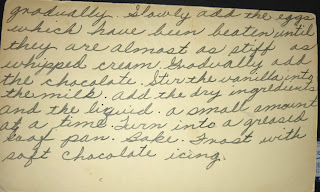 gradually. Slowly add the eggs
which have been beaten until
they are almost as stiff as
whipped cream. Gradually add
the chocolate. Stir the vanilla into
the milk. add the dry ingredients
and the liquid. a small amount
at a time. Turn into a greased
loaf pan. Bake. Frost with
soft chocolate icing.